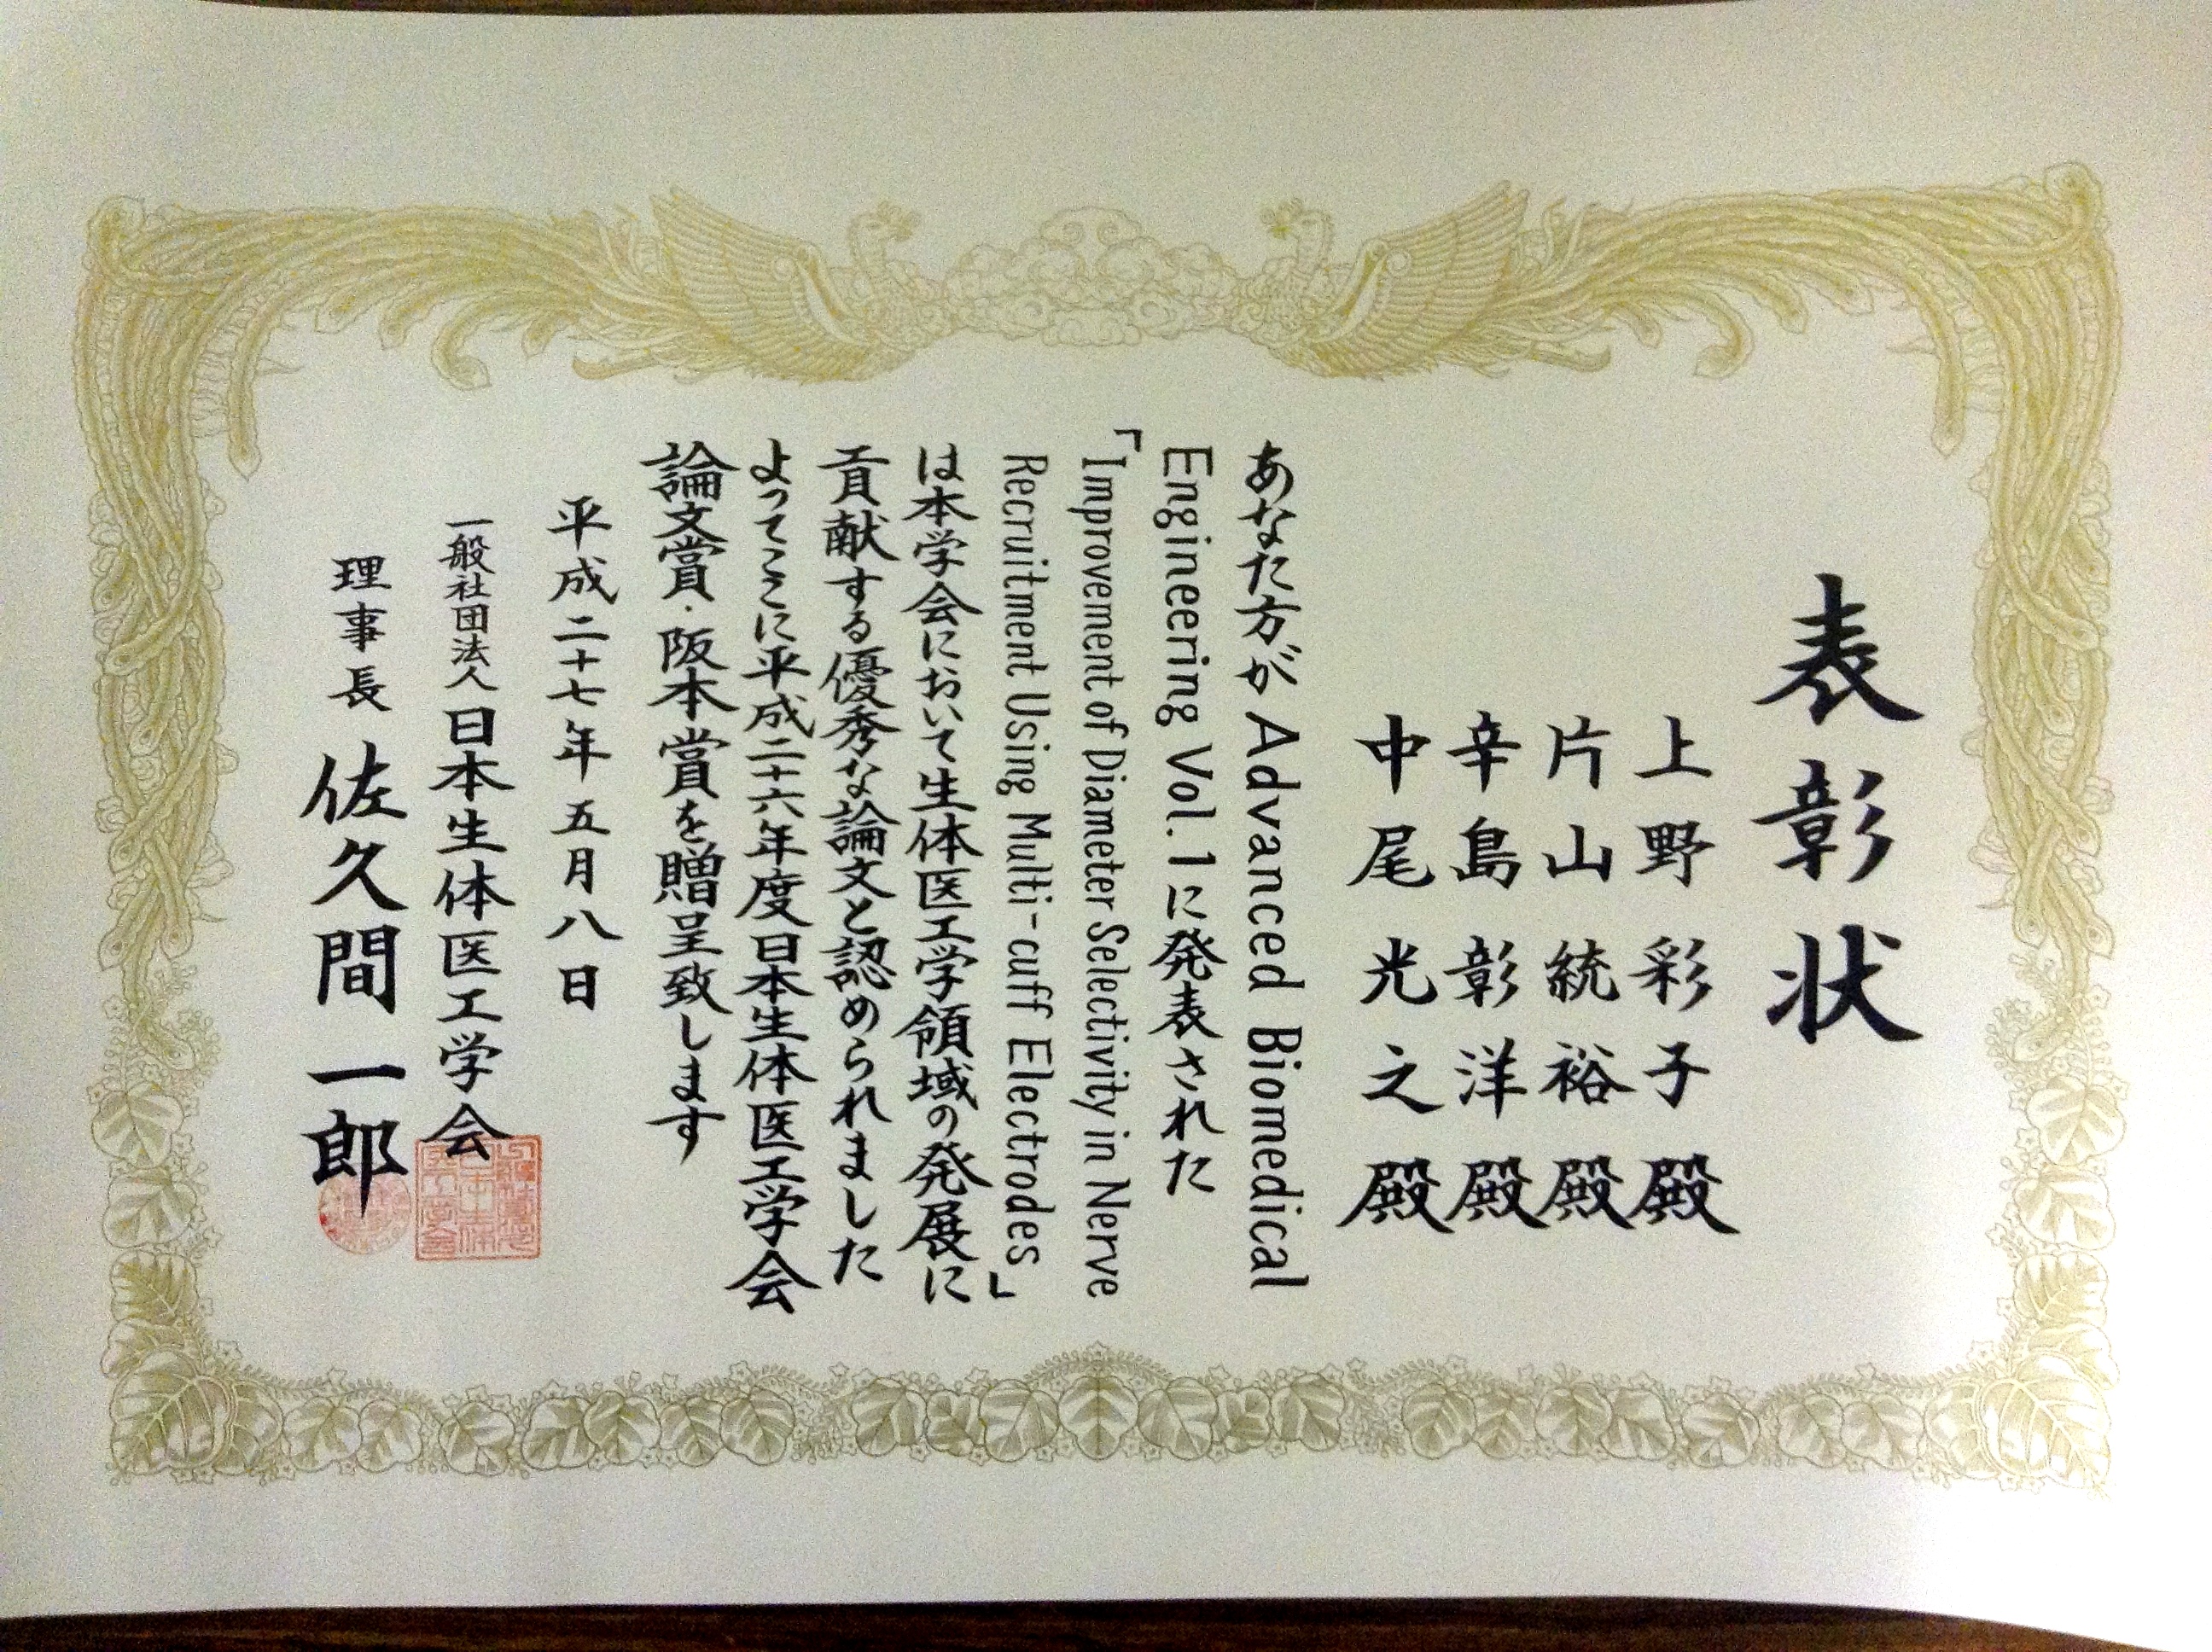 表彰状
上野彩子殿
片山統裕殿
辛島彰洋殿
中尾光之殿
あなた方が Advanced Biomedical
Engineering Vol.1に発表された
「Improvement of Diameter Selectivity in Nerve
Recruitment Using Multi-cuff Electrodes」
は本学会において生体医工学領域の発展に
貢献する優秀な論文と認められました
よってここに平成二十六年度日本生体医工学会
論文賞・阪本賞を贈呈致します
平成二十七年五月八日
一般社団法人日本生体医工学会
理事長 佐久間一郎